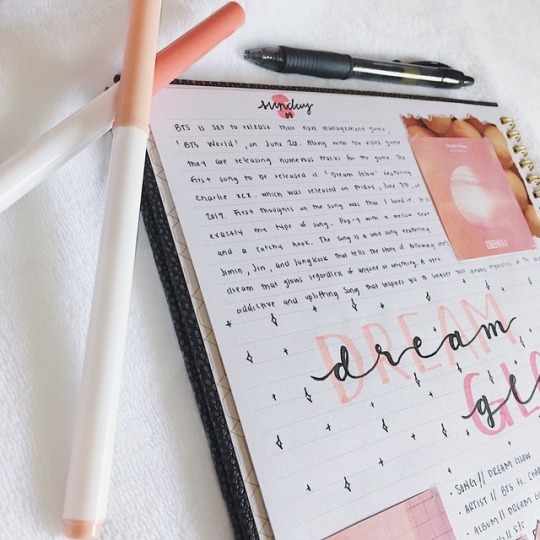 sunday
BTS is set to release their new management game,
'BTS World', on June 26. Along with the video game
they are releasing numerous tracks for the game. The
first song to be released is 'Dream Glow' featuring
Charlie XCX, which was released on Friday, June
2019. First thoughts on the song was that I loved it. It is
exactly my type of song. Pop-y with a mellow beat
and a catchy hook. The song is a unit song featuring
Jimin, Jin, and Jungkook that tells the story of following ones
dream that glows regardless of anyone or anything. A very
addictive and uplifting song that inspires you to conquer your dreams regardless of the
DREAM
dream
GLO
glo
• SONG // DREAM GLOW
• ARTIST // BTS ft. CHAR
• ALBUM // DREAM GL
// 5/5